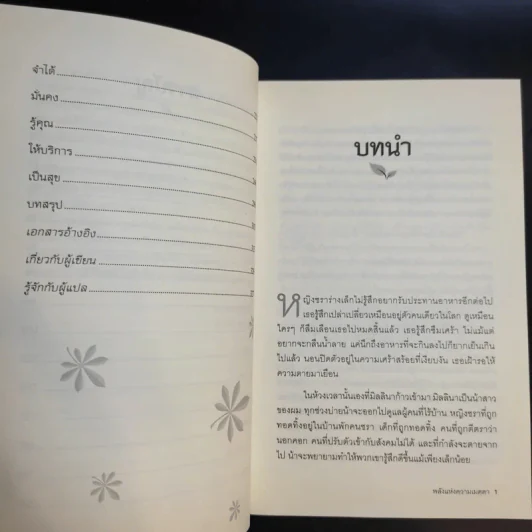 จำได้
มั่นคง
รู้คุณ
ให้บริการ
เป็นสุข
บทสรุป
เอกสารอ้างอิง
เกี่ยวกับผู้เขียน
รู้จักกับผู้แปล
บทนำ
หญิงชราร่างเล็กไม่รู้สึกอยากรับประทานอาหารอีกต่อไป
เธอรู้สึกเปล่าเปลี่ยวเหมือนอยู่ตัวคนเดียวในโลก ดูเหมือน
ใครๆ ก็ลืมเลือนเธอไปหมดสิ้นแล้ว เธอรู้สึกซึมเศร้า ไม่แม้แต่
อยากจะกลืนน้ำลาย แค่นึกถึงอาหารที่จะกินลงไปก็ยากเย็นเกิน
ไปแล้ว นอนปิดตัวอยู่ในความเศร้าสร้อยที่เงียบงัน เธอเฝ้ารอให้
ความตายมาเยือน
ในห้วงเวลานั้นเองที่มิลลินาก้าวเข้ามา มิลลินาเป็นน้าสาว
ของผม ทุกช่วงบ่ายน้าจะออกไปดูแลผู้คนที่ไร้บ้าน หญิงชราที่ถูก
ทอดทิ้งอยู่ในบ้านพักคนชรา เด็กที่ถูกทอดทิ้ง คนที่ถูกตีตราว่า
นอกคอก คนที่ปรับตัวเข้ากับสังคมไม่ได้ และที่กำลังจะตายจาก
ไป น้าจะพยายามทำให้พวกเขารู้สึกดีขึ้นแม้เพียงเล็กน้อย
พลังแห่งความเมตตา 1